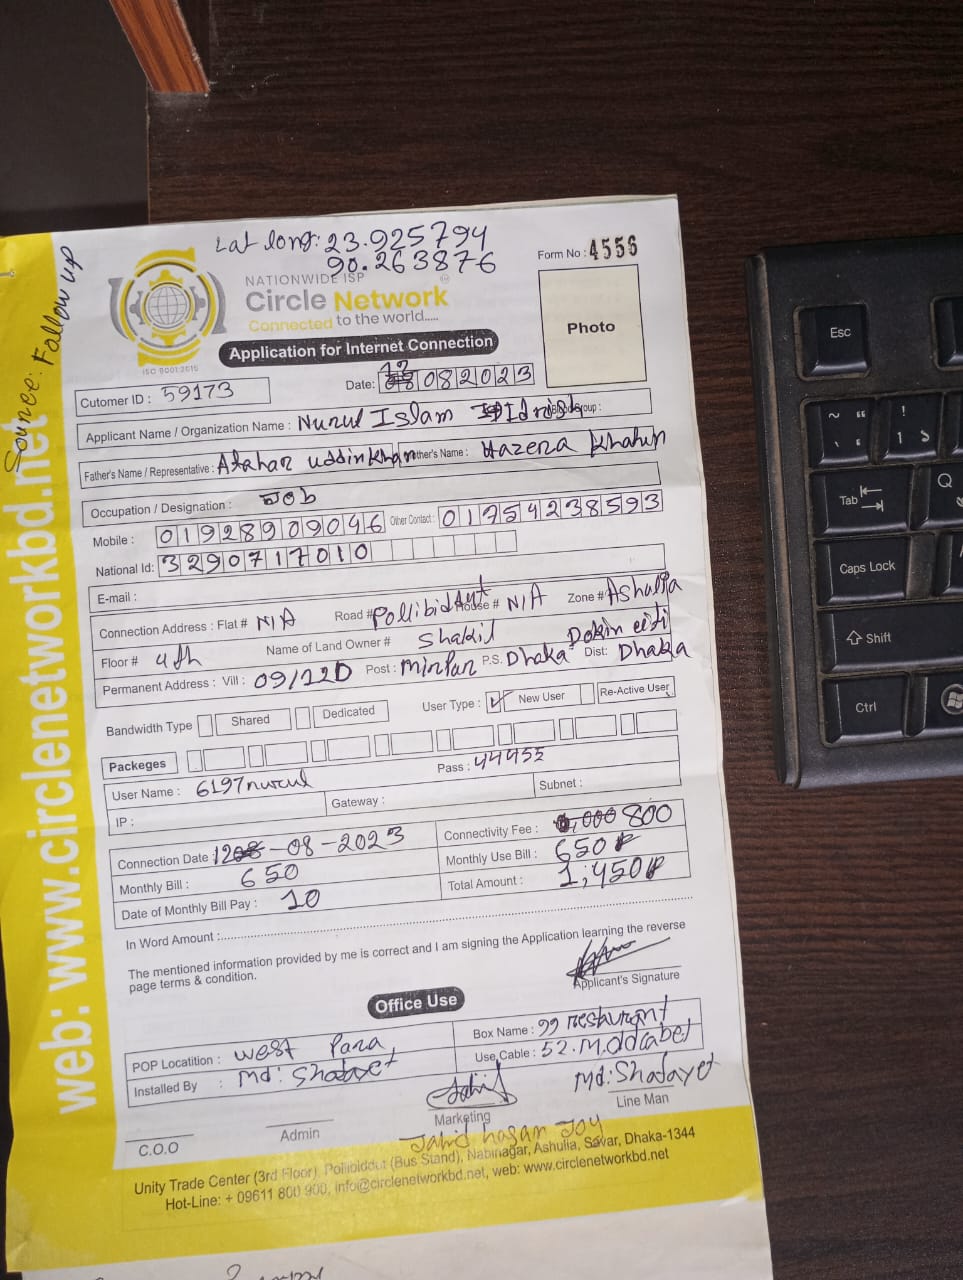 Lat long: 23.925794
90.263876
Source: Follow up
web: www.circlenetworkbd.net
Form No : 4556
NATIONWIDE ISP
Circle Network
Connected to the world.....
ISO 9001:2015
Photo
Application for Internet Connection
Cutomer ID : 59173
Date: 12 082023
Applicant Name / Organization Name : Nurul Islam Idris Group :
Father's Name / Representative : Atahar uddin khan ther's Name : Hazera Khatun
Occupation / Designation : Job
Mobile : 01928909046 Other Contact : 01754238593
National Id: 3290717010
E-mail :
Connection Address : Flat # N/A Road # Pollibiddut House # N/A Zone # Ashulia
Floor # 4th Name of Land Owner # Shakil
Permanent Address : Vill : 09/22D Post : Mirpur P.S. Dhaka Dokin citi Dist: Dhaka
Bandwidth Type Shared Dedicated User Type : New User Re-Active User
Packeges
User Name : 6197nurul Pass : 44955
IP : Gateway : Subnet :
Connection Date : 12-08-2023 Connectivity Fee : 1,000 800
Monthly Bill : 650 Monthly Use Bill : 650
Date of Monthly Bill Pay : 10 Total Amount : 1,450
In Word Amount :
The mentioned information provided by me is correct and I am signing the Application learning the reverse
page terms & condition.
Applicant's Signature
Office Use
POP Locatition : West Para Box Name : 99 Resturent
Installed By : Md: Shadayet Use Cable : 52.M.
Md: Shadayet
C.O.O Admin Marketing Line Man
Jahid hasan Joy
Unity Trade Center (3rd Floor), Pollibiddut (Bus Stand), Nabinagar, Ashulia, Savar, Dhaka-1344
Hot-Line: + 09611 800 900, info@circlenetworkbd.net, web: www.circlenetworkbd.net
Esc
~
!
1
Tab
Q
Caps Lock
Shift
Ctrl